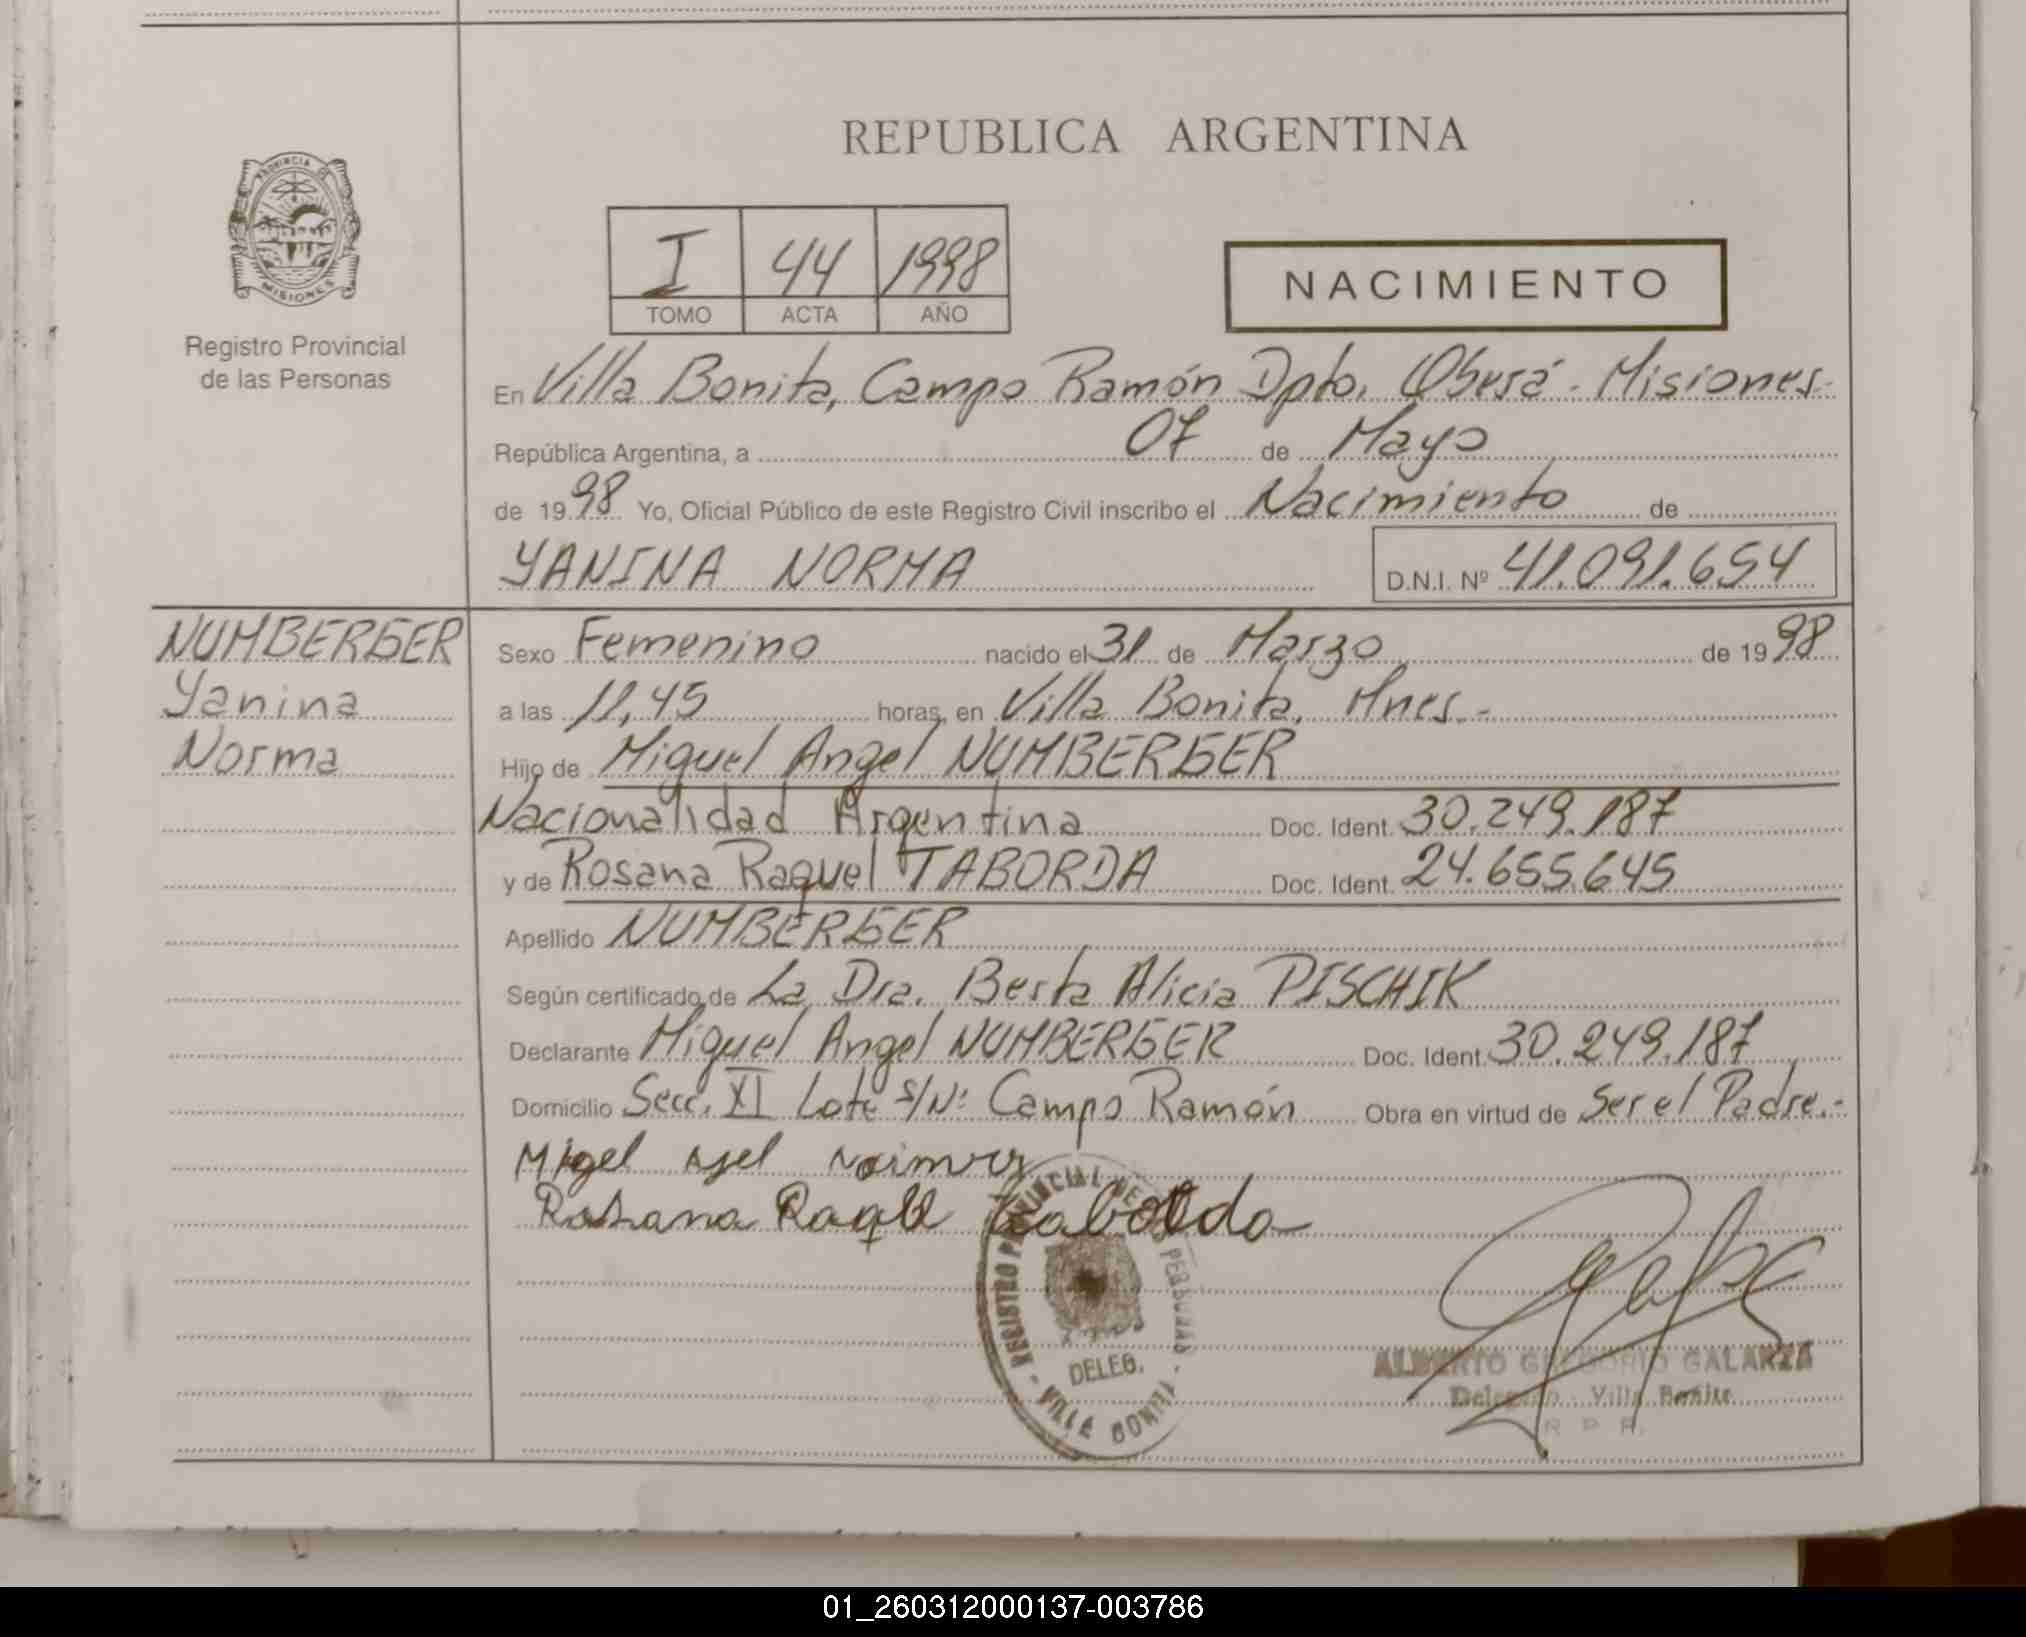 REPUBLICA ARGENTINA
PROVINCIA DE
MISIONES
Registro Provincial
de las Personas
I 44 1998
TOMO ACTA AÑO
NACIMIENTO
En Villa Bonita, Campo Ramón Dpto. Oberá - Misiones.-
República Argentina, a 07 de Mayo
de 1998 Yo, Oficial Público de este Registro Civil inscribo el Nacimiento de
YANINA NORMA D.N.I. Nº 41.091.654
NUMBERGER
Yanina
Norma
Sexo Femenino nacido el 31 de Marzo de 1998
a las 11,45 horas, en Villa Bonita, Mnes.-
Hijo de Miguel Angel NUMBERGER
Nacionalidad Argentina Doc. Ident. 30.249.187
y de Rosana Raquel TABORDA Doc. Ident. 24.655.645
Apellido NUMBERGER
Según certificado de La Dra. Berta Alicia PISCHIK
Declarante Miguel Angel NUMBERGER Doc. Ident. 30.249.187
Domicilio Secc. XI Lote s/Nº Campo Ramón Obra en virtud de Ser el Padre.-
Migel
Rosana Raqel Taborda
REGISTRO PROVINCIAL DE LAS PERSONAS
DELEG.
- VILLA BONITA -
ALBERTO GREGORIO GALARZA
Delegado Villa Bonita
R P P.
01_260312000137-003786